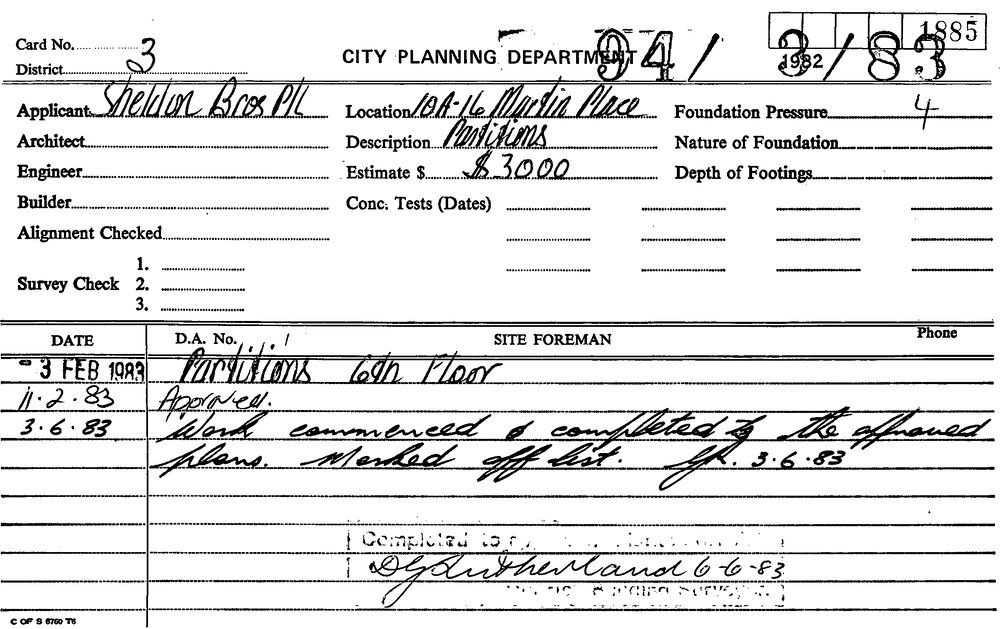 1885
Card No. 3
CITY PLANNING DEPARTMENT 94/ 3/83
1982
District
Applicant Sheldon Bros P/L Location 10A-16 Martin Place Foundation Pressure 4
Architect Description Partitions Nature of Foundation
Engineer Estimate $ $3000 Depth of Footings
Builder Conc. Tests (Dates)
Alignment Checked
1.
Survey Check 2.
3.
DATE D.A. No. SITE FOREMAN Phone
-3 FEB 1983 Partitions 6th Floor
11.2.83 Approved.
3.6.83 Work commenced & completed to the approved
plans. Marked off list. 3.6.83
Completed to
DG Sutherland 6-6-83
Building Surveyor
C OF S 6760 T6